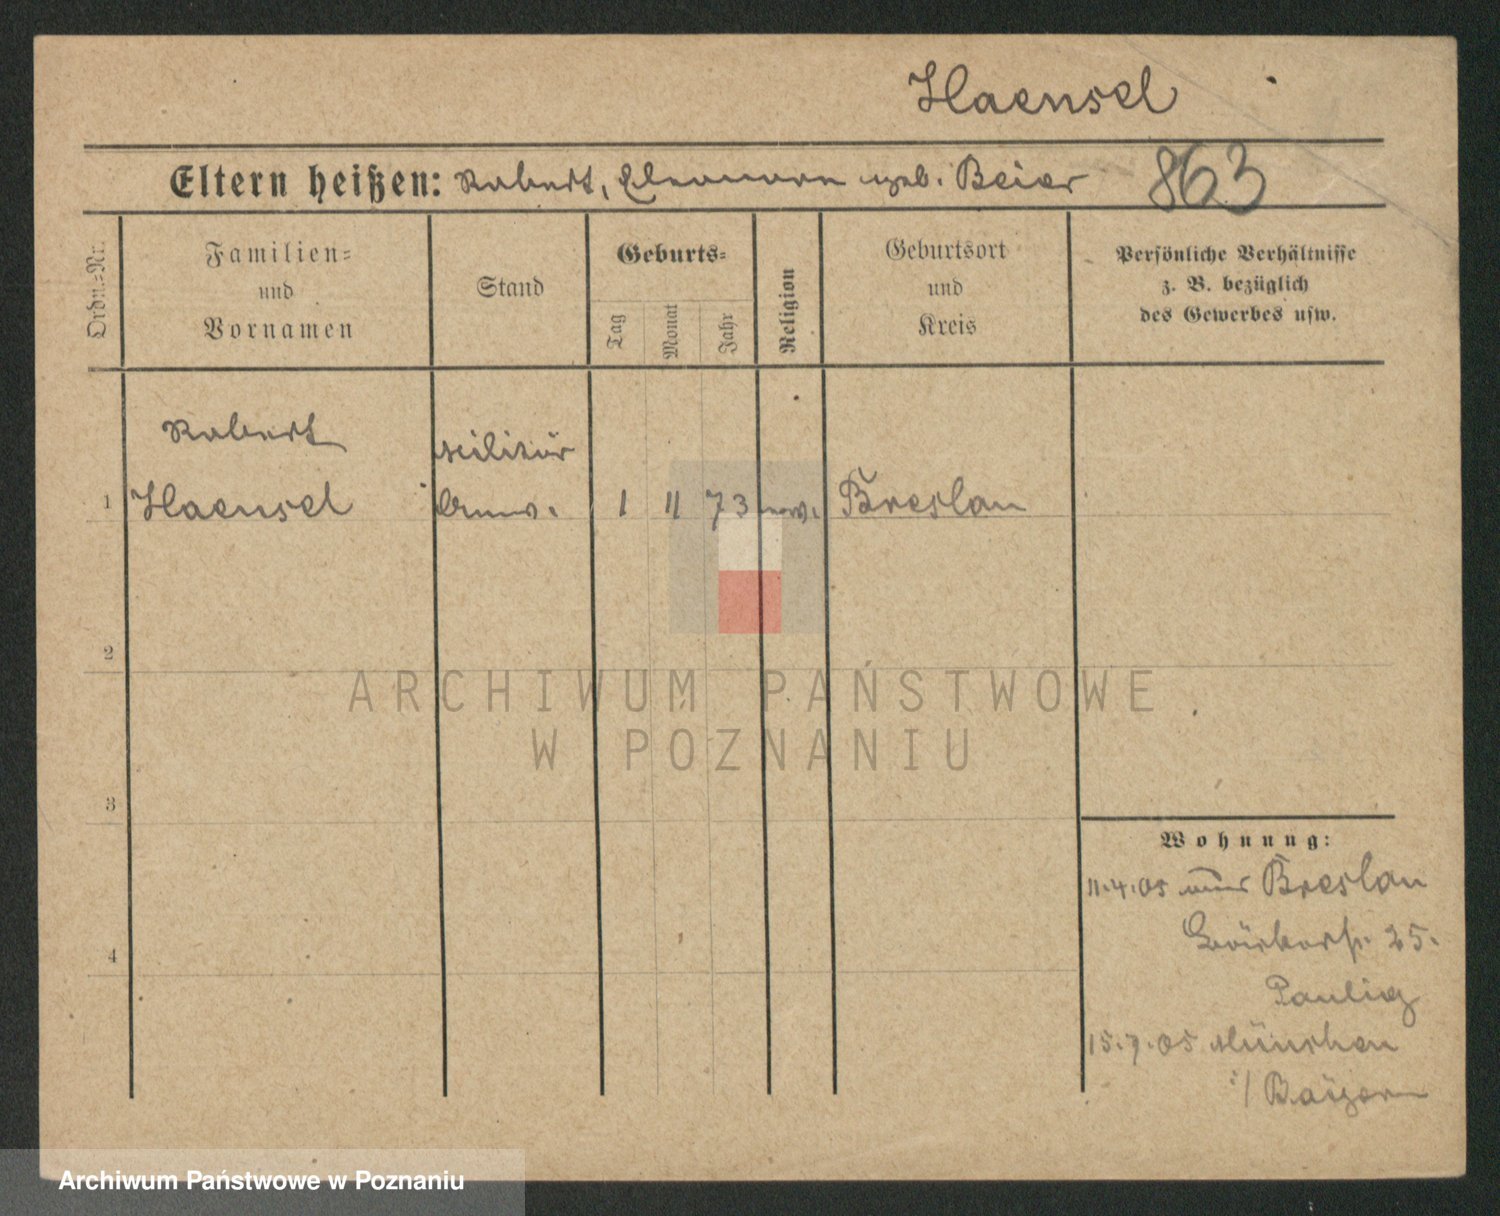 Haensel
863
Eltern heißen: Robert, Eleonore geb. Beier
Ordn.-Nr.
Familien-
und
Vornamen
Stand
Geburts-
Tag
Monat
Jahr
Religion
Geburtsort
und
Kreis
Persönliche Verhältnisse
z. B. bezüglich
des Gewerbes usw.
Robert
Militär
1 Haensel Anw. 1 11 73 ev. Breslau
2
3
4
Wohnung:
11.4.05 Breslau
25.
Paulig
15.7.05 München
i/ Bayern
ARCHIWUM PAŃSTWOWE
W POZNANIU
Archiwum Państwowe w Poznaniu